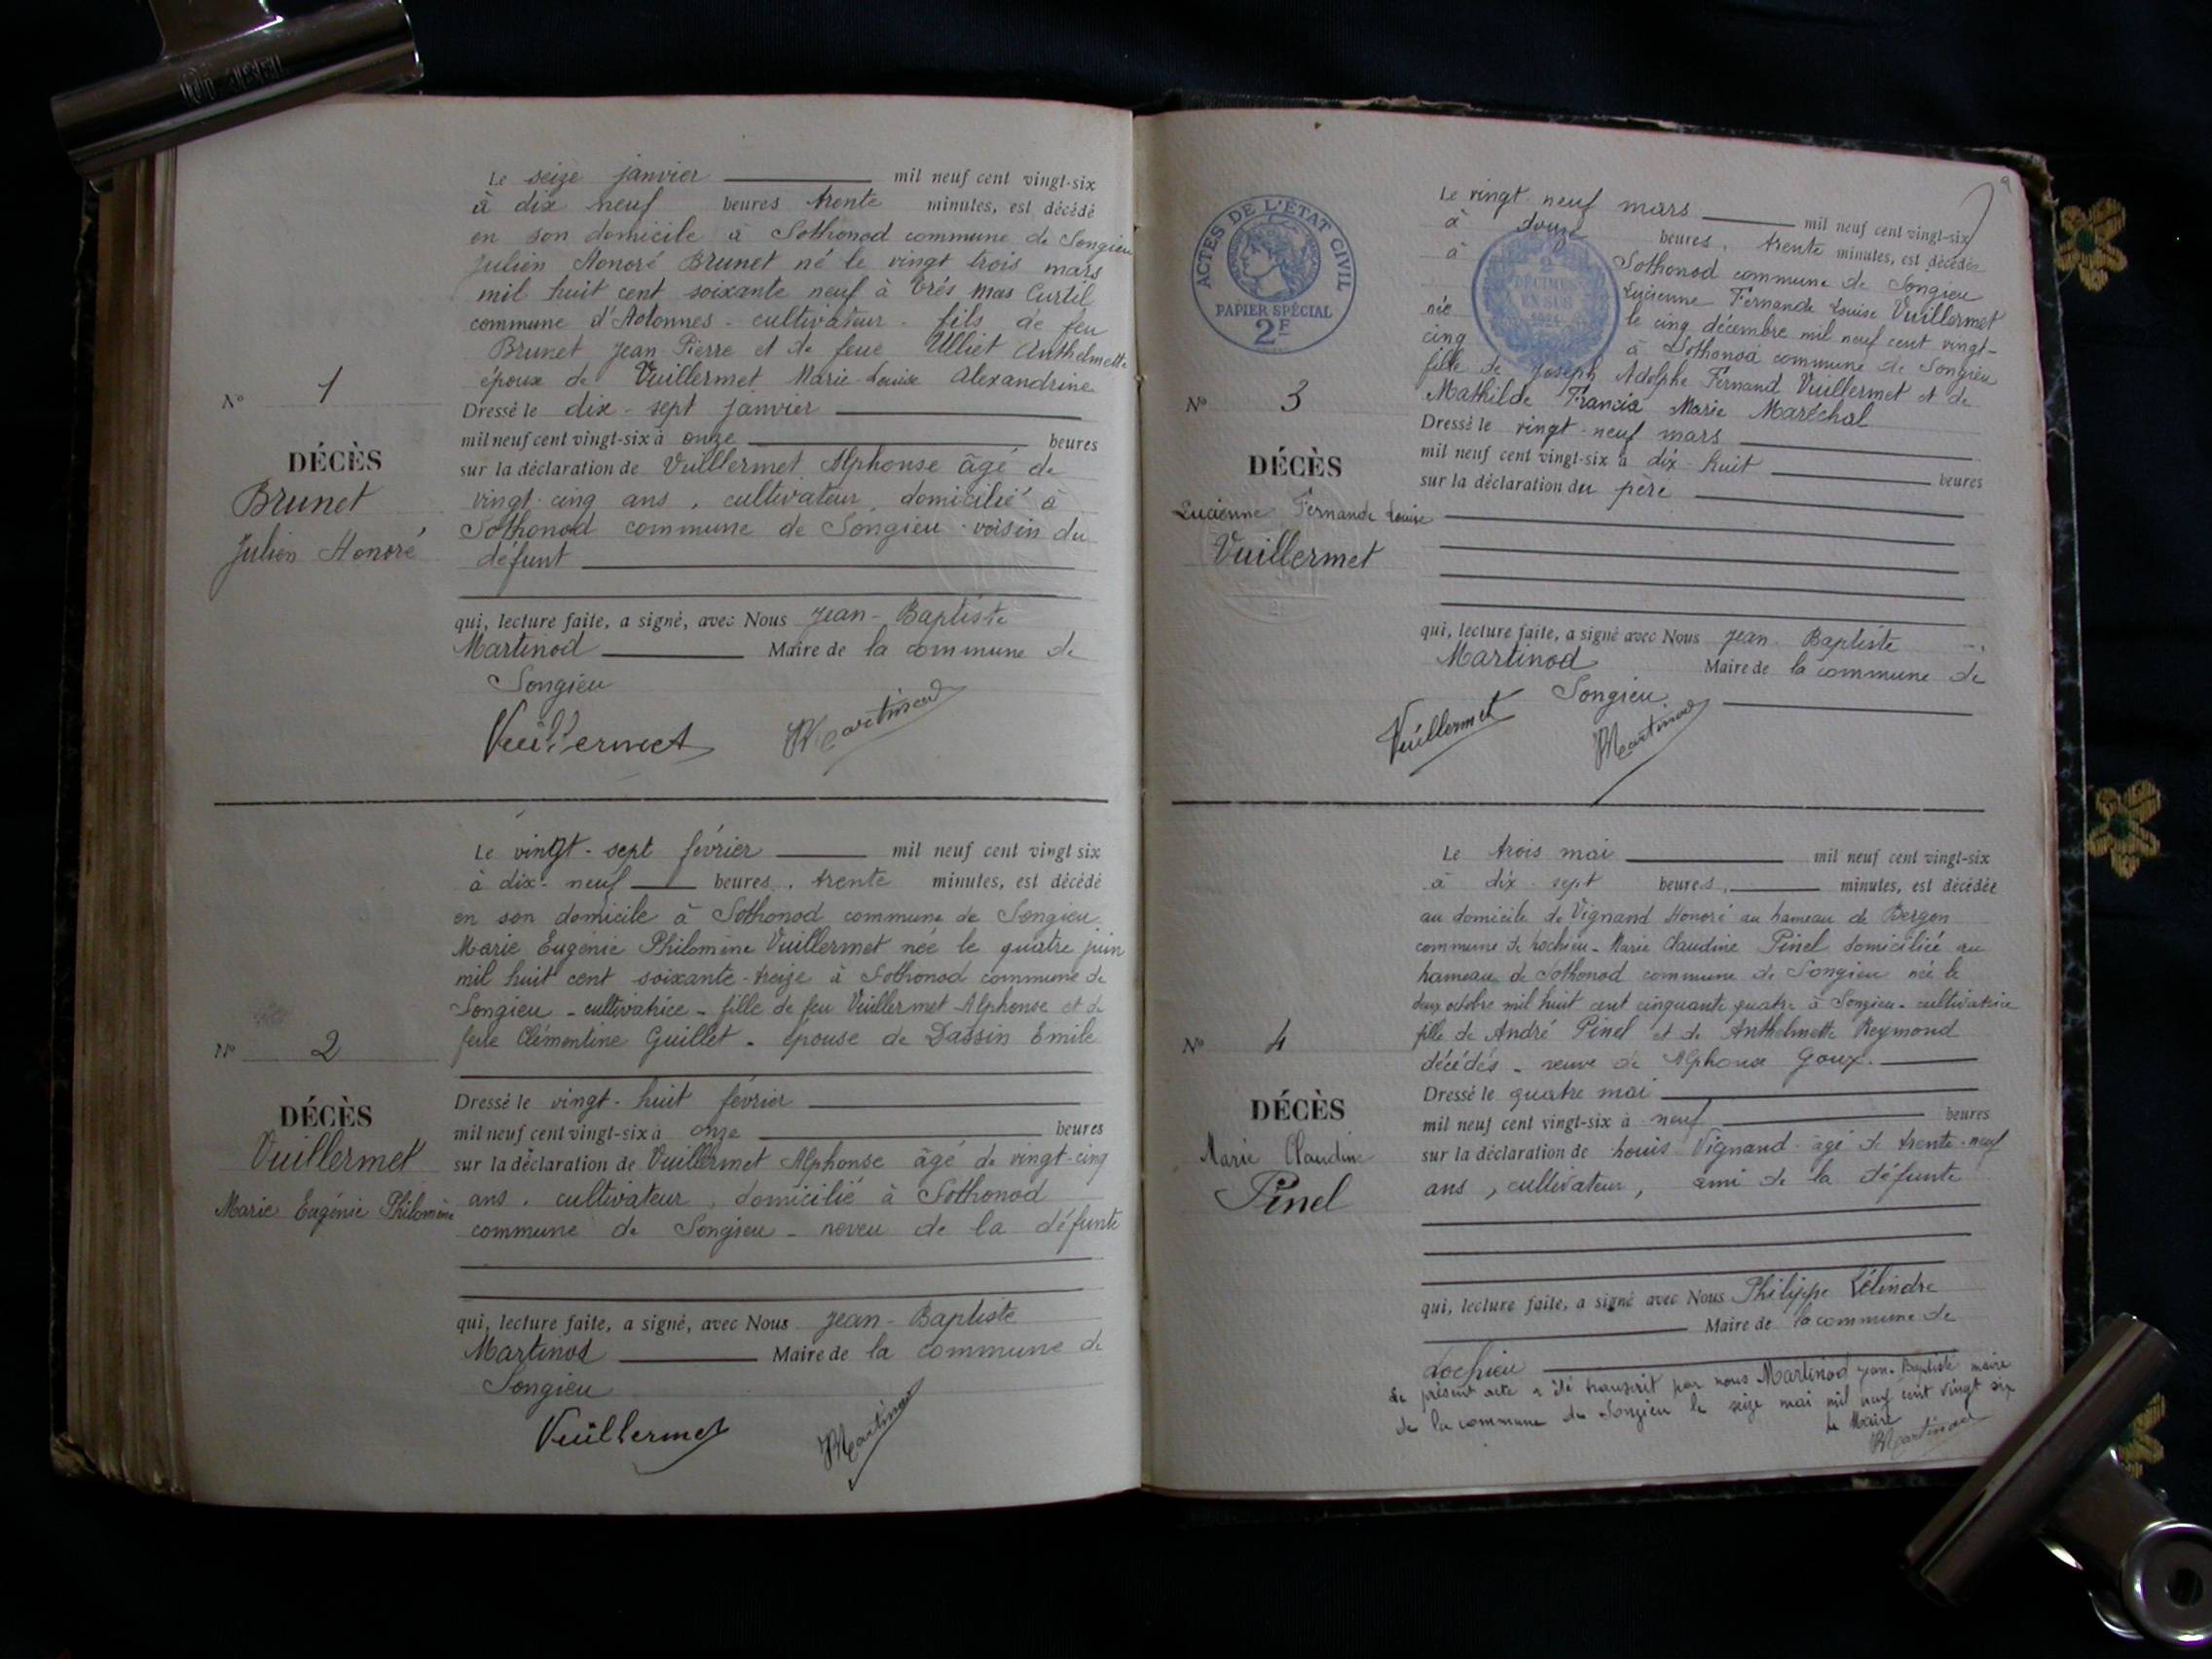 Le seize janvier mil neuf cent vingt-six
à dix neuf heures trente minutes, est décédé
en son domicile à Sothonod commune de Songieu
Julien Honoré Brunet né le vingt trois mars
mil huit cent soixante neuf à Très Mas Curtil
commune d'Hotonnes - cultivateur - fils de feu
Brunet Jean-Pierre et de feue Ulliet Anthelmette
époux de Vuillermet Marie-Louise Alexandrine
Dressé le dix-sept janvier
mil neuf cent vingt-six à onze heures
sur la déclaration de Vuillermet Alphonse âgé de
vingt-cinq ans, cultivateur domicilié à
Sothonod commune de Songieu - voisin du
défunt
qui, lecture faite, a signé, avec Nous Jean-Baptiste
Martinod Maire de la commune de
Songieu
Vuillermet Martinod
N° 1
DÉCÈS
Brunet
Julien Honoré
Le vingt-sept février mil neuf cent vingt six
à dix-neuf heures, trente minutes, est décédé
en son domicile à Sothonod commune de Songieu
Marie Eugénie Philomène Vuillermet née le quatre juin
mil huit cent soixante-treize à Sothonod commune de
Songieu - cultivatrice - fille de feu Vuillermet Alphonse et de
feue Clémentine Guillet - épouse de Dassin Emile
Dressé le vingt-huit février
mil neuf cent vingt-six à onze heures
sur la déclaration de Vuillermet Alphonse âgé de vingt-cinq
ans, cultivateur, domicilié à Sothonod
commune de Songieu - neveu de la défunte
qui, lecture faite, a signé, avec Nous Jean-Baptiste
Martinod Maire de la commune de
Songieu
Vuillermet Martinod
N° 2
DÉCÈS
Vuillermet
Marie Eugénie Philomène
9
ACTES DE L'ÉTAT CIVIL
PAPIER SPÉCIAL
2F
2
DÉCIMES
EN SUS
Le vingt-neuf mars mil neuf cent vingt-six
à douze heures, trente minutes, est décédée
à Sothonod commune de Songieu
Lucienne Fernande Louise Vuillermet
née le cinq décembre mil neuf cent vingt-
cinq à Sothonod commune de Songieu
fille de Joseph Adolphe Fernand Vuillermet et de
Mathilde Francia Marie Maréchal
Dressé le vingt-neuf mars
mil neuf cent vingt-six à dix-huit heures
sur la déclaration du père
qui, lecture faite, a signé avec Nous Jean-Baptiste
Martinod Maire de la commune de
Songieu
Vuillermet Martinod
N° 3
DÉCÈS
Lucienne Fernande Louise
Vuillermet
Le trois mai mil neuf cent vingt-six
à dix-sept heures, minutes, est décédée
au domicile de Vignand Honoré au hameau de Bergon
commune de Lochieu - Marie Claudine Pinel domiciliée au
hameau de Sothonod commune de Songieu née le
deux octobre mil huit cent cinquante quatre à Songieu - cultivatrice
fille de André Pinel et de Anthelmette Reymond
décédés - veuve de Alphonse Goux.
Dressé le quatre mai
mil neuf cent vingt-six à neuf heures
sur la déclaration de Louis Vignand âgé de trente-neuf
ans, cultivateur, ami de la défunte
qui, lecture faite, a signé avec Nous Philippe
Maire de la commune de
Lochieu
Le présent acte a été transcrit par nous Martinod Jean-Baptiste maire
de la commune de Songieu le seize mai mil neuf cent vingt six
Le Maire
Martinod
N° 4
DÉCÈS
Marie Claudine
Pinel